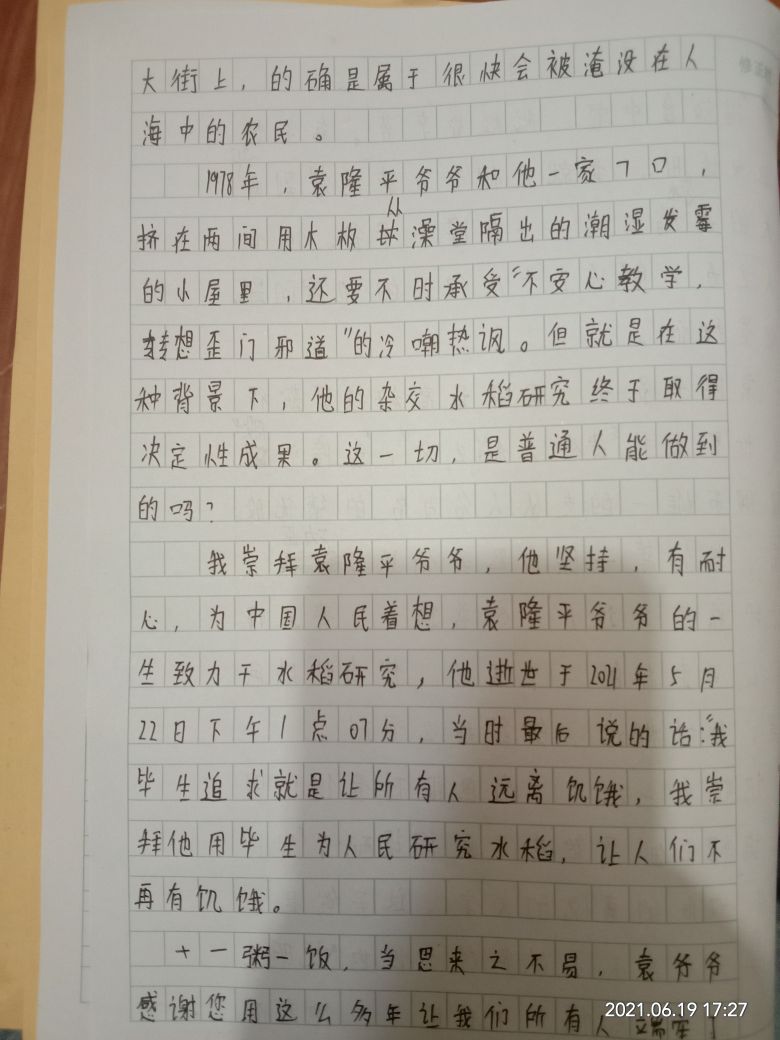 大街上，的确是属于很快会被淹没在人
海中的农民。
1978年，袁隆平爷爷和他一家7口，
挤在两间用木板从澡堂隔出的潮湿发霉
的小屋里，还要不时承受“不安心教学，
转想歪门邪道”的冷嘲热讽。但就是在这
种背景下，他的杂交水稻研究终于取得
决定性成果。这一切，是普通人能做到
的吗？
我崇拜袁隆平爷爷，他坚持，有耐
心，为中国人民着想，袁隆平爷爷的一
生致力于水稻研究，他逝世于2021年5月
22日下午1点07分，当时最后说的话：“我
毕生追求就是让所有人远离饥饿，我崇
拜他用毕生为人民研究水稻，让人们不
再有饥饿。
一粥一饭，当思来之不易，袁爷爷
感谢您用这么多年让我们所有人端牢了
2021.06.19 17:27